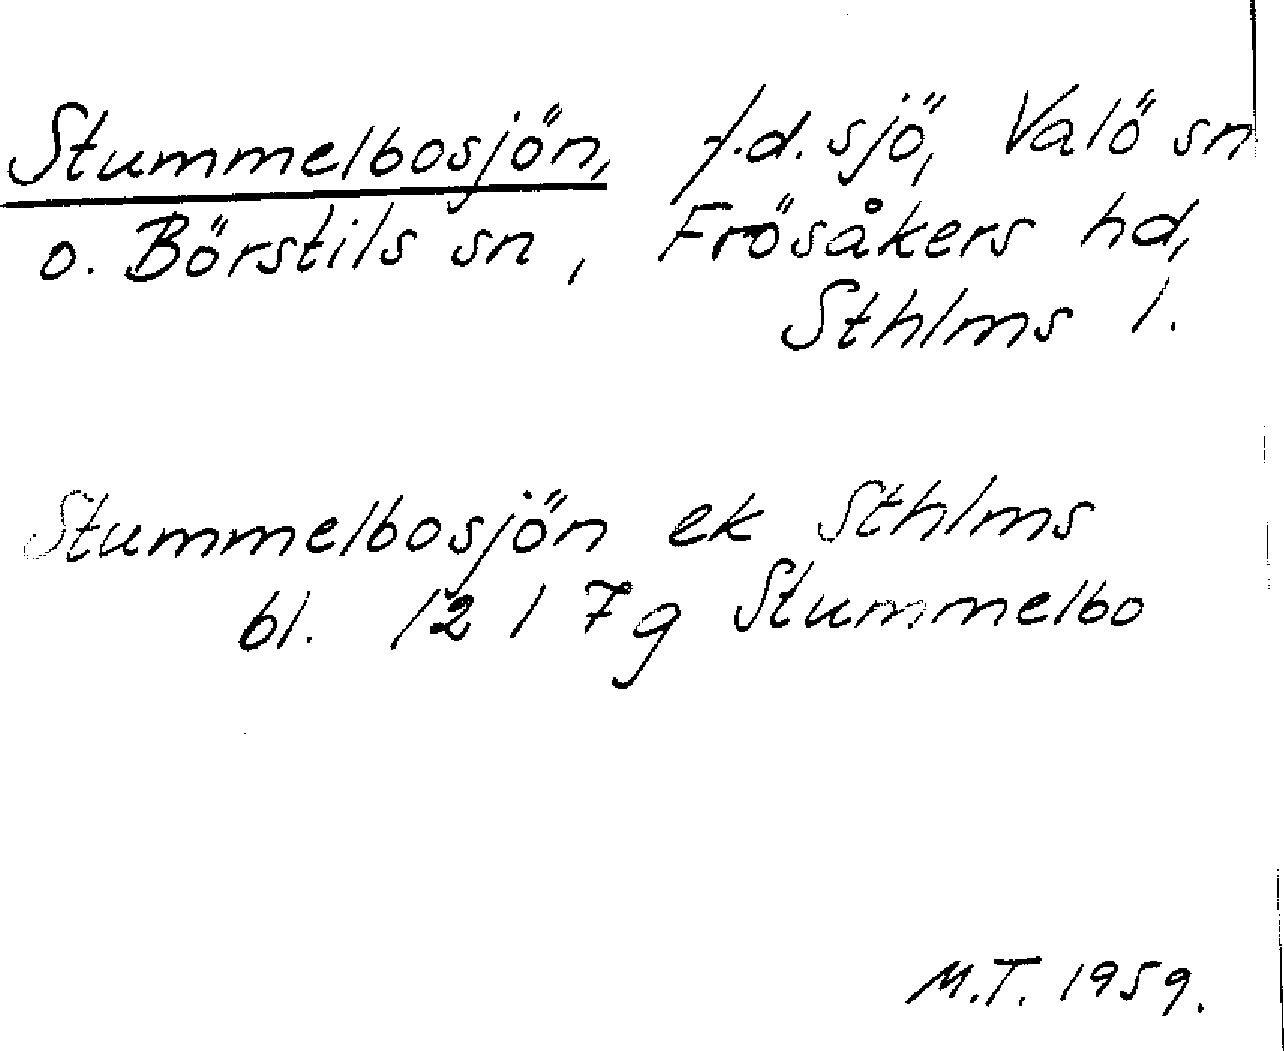 Stummelbosjön, f.d. sjö, Valö sn
o. Börstils sn, Frösåkers hd,
Sthlms l.
Stummelbosjön ek Sthlms
bl. 12 I 7g Stummelbo
M.T. 1959.